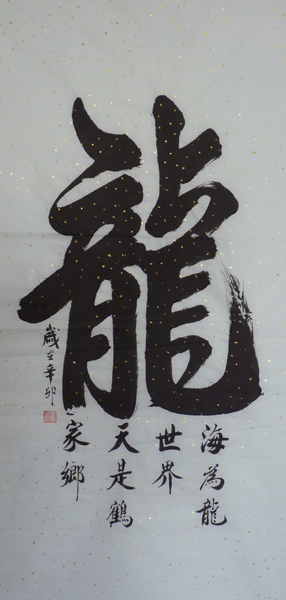 龍
海為龍
世界
天是鶴
家鄉
歲在辛卯